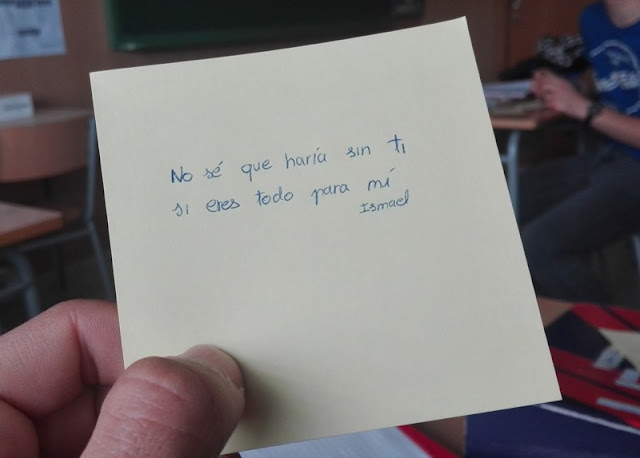 No sé que haría sin ti
si eres todo para mí
Ismael